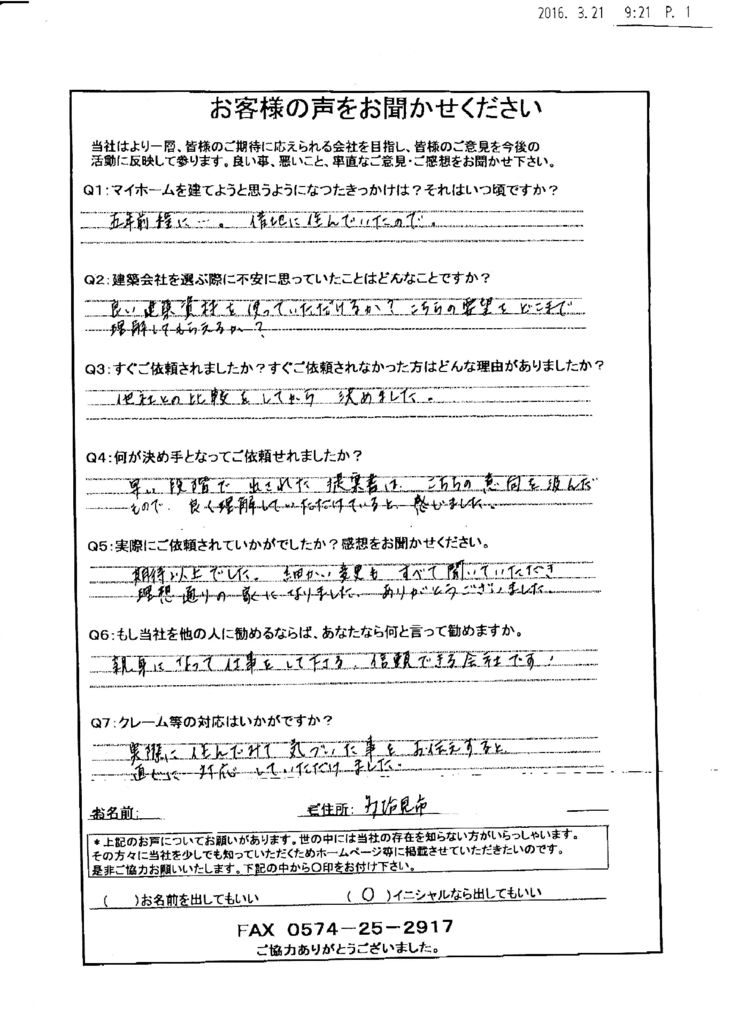 2016. 3.21 9:21 P. 1
お客様の声をお聞かせください
当社はより一層、皆様のご期待に応えられる会社を目指し、皆様のご意見を今後の
活動に反映して参ります。良い事、悪いこと、率直なご意見・ご感想をお聞かせ下さい。
Q1:マイホームを建てようと思うようになつたきっかけは？それはいつ頃ですか？
五年前程に…。 借地に住んでいたので。
Q2:建築会社を選ぶ際に不安に思っていたことはどんなことですか？
良い建築資材を使っていただけるか？こちらの要望をどこまで
理解してもらえるか？
Q3:すぐご依頼されましたか？すぐご依頼されなかった方はどんな理由がありましたか？
他社との比較をしてから 決めました。
Q4:何が決め手となってご依頼せれましたか？
早い段階で出された提案書は、こちらの意向を汲んだ
もので、良く理解していただけていると感じました。
Q5:実際にご依頼されていかがでしたか？感想をお聞かせください。
期待以上でした。細かい意見も すべて聞いていただき
理想通りの家になりました。ありがとうございました。
Q6:もし当社を他の人に勧めるならば、あなたなら何と言って勧めますか。
親身になって仕事をして下さる、信頼できる会社です！
Q7:クレーム等の対応はいかがですか？
実際に住んでみて気づいた事をお伝えすると、
直ぐに対応していただけました。
お名前: ご住所: 多治見市
＊上記のお声についてお願いがあります。世の中には当社の存在を知らない方がいらっしゃいます。
その方々に当社を少しでも知っていただくためホームページ等に掲載させていただきたいのです。
是非ご協力お願いいたします。下記の中から○印をお付け下さい。
( )お名前を出してもいい (○)イニシャルなら出してもいい
FAX 0574-25-2917
ご協力ありがとうございました。